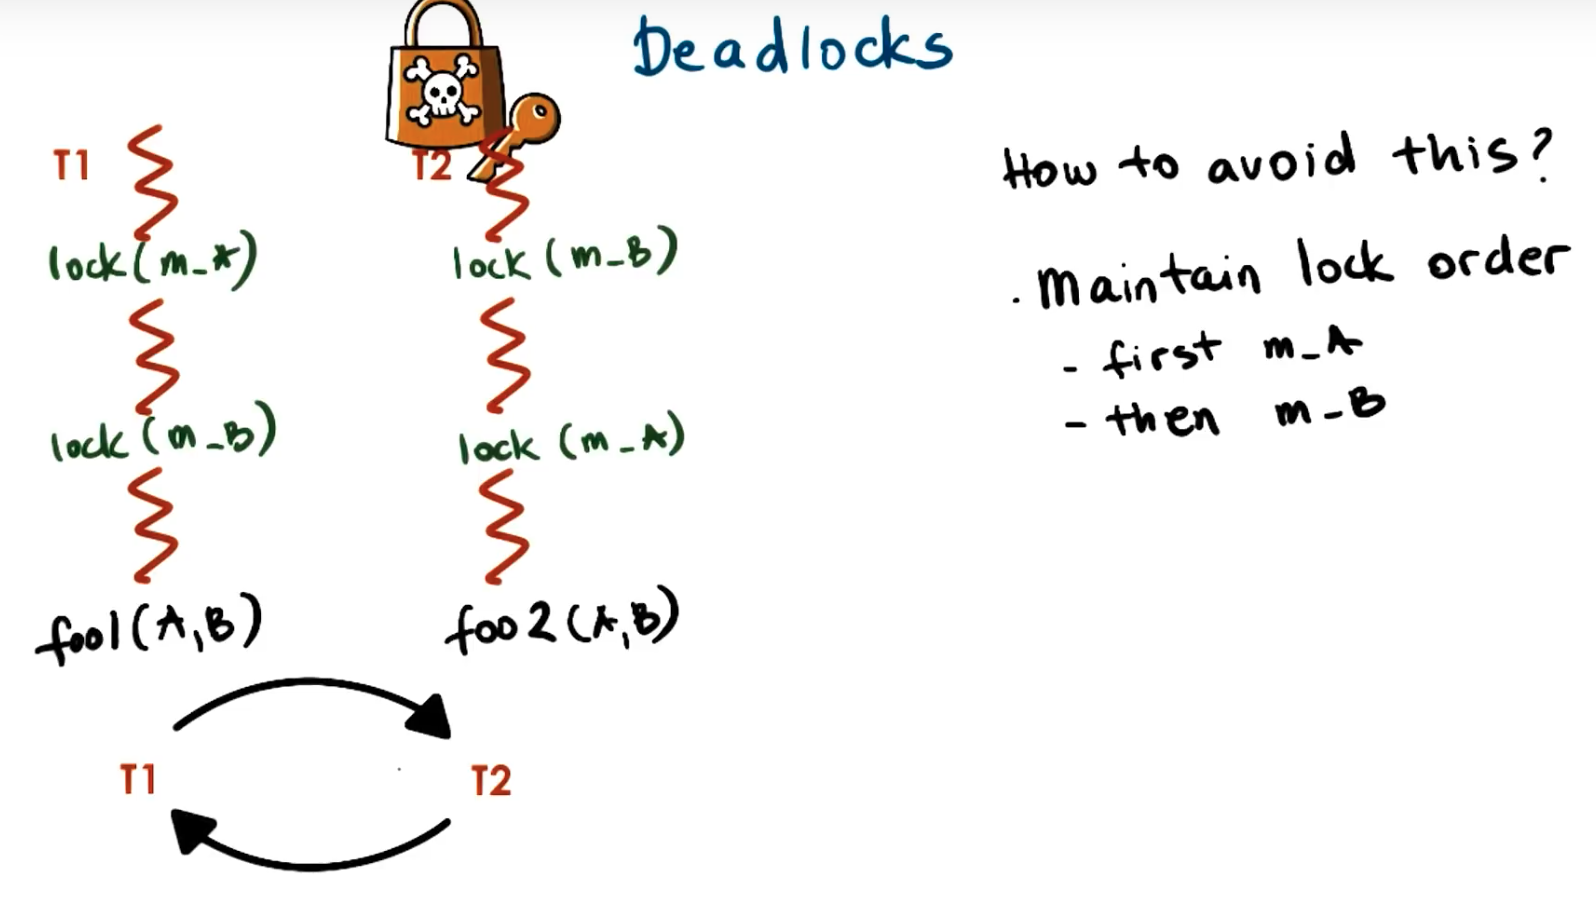 Deadlocks
T1
T2
lock(m_A)
lock (m_B)
lock (m_B)
lock (m_A)
foo1(A,B)
foo2(A,B)
T1
T2
How to avoid this?
. Maintain lock order
- first m_A
- then m_B